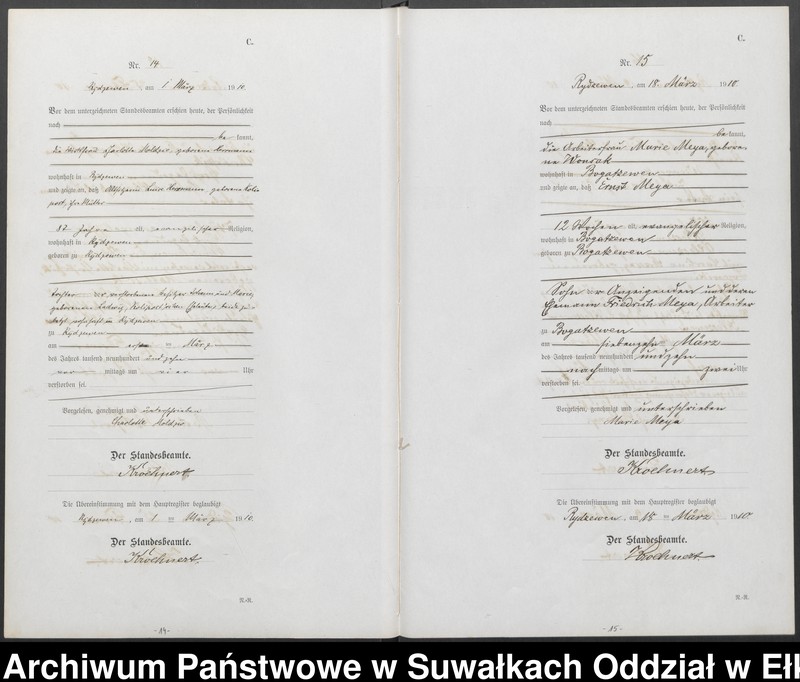 C.
Nr. 14
Rydzewen am 1 März 1910.
Vor dem unterzeichneten Standesbeamten erschien heute, der Persönlichkeit
nach
be kannt,
die Charlotte geborene
wohnhaft in Rydzewen
und zeigte an, daß geborene
ihre Mutter
87 Jahre alt, evangelischer Religion,
wohnhaft in Rydzewen
geboren zu Rydzewen
Tochter der verstorbenen Besitzer und
geborenen
zuletzt wohnhaft in Rydzewen
zu Rydzewen
am ersten März
des Jahres tausend neunhundert und zehn
vor mittags um vier Uhr
verstorben sei.
Vorgelesen, genehmigt und unterschrieben
Charlotte
Der Standesbeamte.
Kroehnert
Die Übereinstimmung mit dem Hauptregister beglaubigt
Rydzewen, am 1 ten März 1910.
Der Standesbeamte.
Kroehnert.
N.-R.
-14-
C.
Nr. 15
Rydzewen, am 18. März 1910
Vor dem unterzeichneten Standesbeamten erschien heute, der Persönlichkeit
nach
be kannt,
die Arbeiterfrau Marie Meya, gebore-
ne Wonrak
wohnhaft in Bogatzewen
und zeigte an, daß Ernst Meya
12 Wochen alt, evangelischer Religion,
wohnhaft in Bogatzewen
geboren zu Bogatzewen
Sohn der Anzeigenden und deren
Ehemann Friedrich Meya, Arbeiter
zu Bogatzewen
am siebenzehn März
des Jahres tausend neunhundert und zehn
nach mittags um zwei Uhr
verstorben sei.
Vorgelesen, genehmigt und unterschrieben
Marie Meya
Der Standesbeamte.
Kroehnert
Die Übereinstimmung mit dem Hauptregister beglaubigt
Rydzewen, am 18 ten März 1910.
Der Standesbeamte.
Kroehnert.
N.-R.
-15-
Archiwum Państwowe w Suwałkach Oddział w Ełk